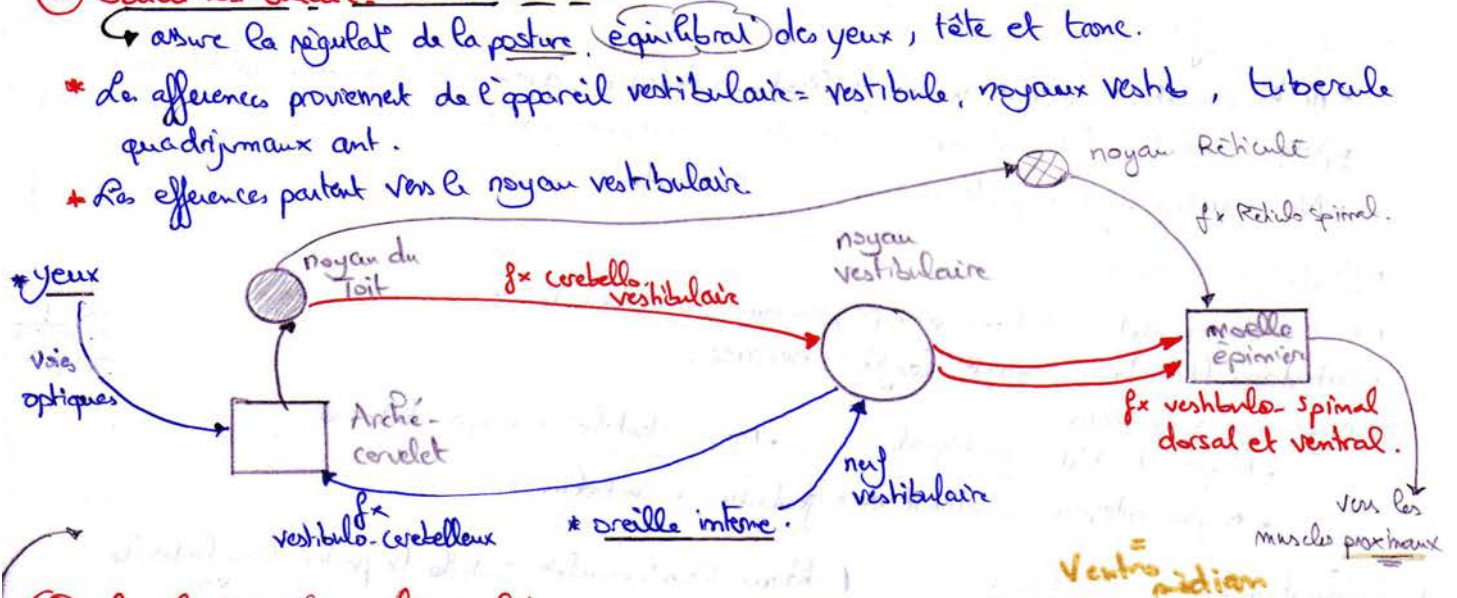 assure la régulat° de la posture, équilibrat° des yeux, tête et tronc.
* Les afferences proviennent de l'appareil vestibulaire = vestibule, noyaux vestib, tubercule
quadrijumaux ant.
* Les efferences partent vers le noyau vestibulaire.
noyau Réticulé
fx Réticulo spinal.
noyau du
Toit
fx cerebello
vestibulaire
noyau
vestibulaire
* yeux
voies
optiques
Arché-
cervelet
moelle
épinier
fx vestibulo-spinal
dorsal et ventral.
nerf
vestibulaire
fx
vestibulo-cerebelleux
* oreille interne.
vers les
muscles proximaux
=
Ventro
médian